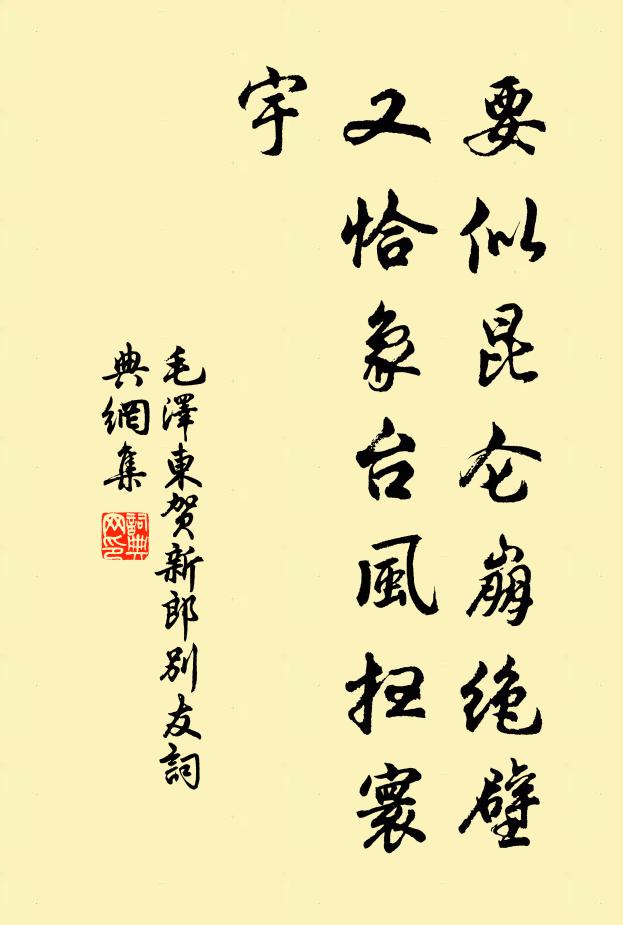 要似昆仑崩绝壁
又恰象台風扫寰
宇
毛澤東贺新郎别友詞
典網集
詞典
网印